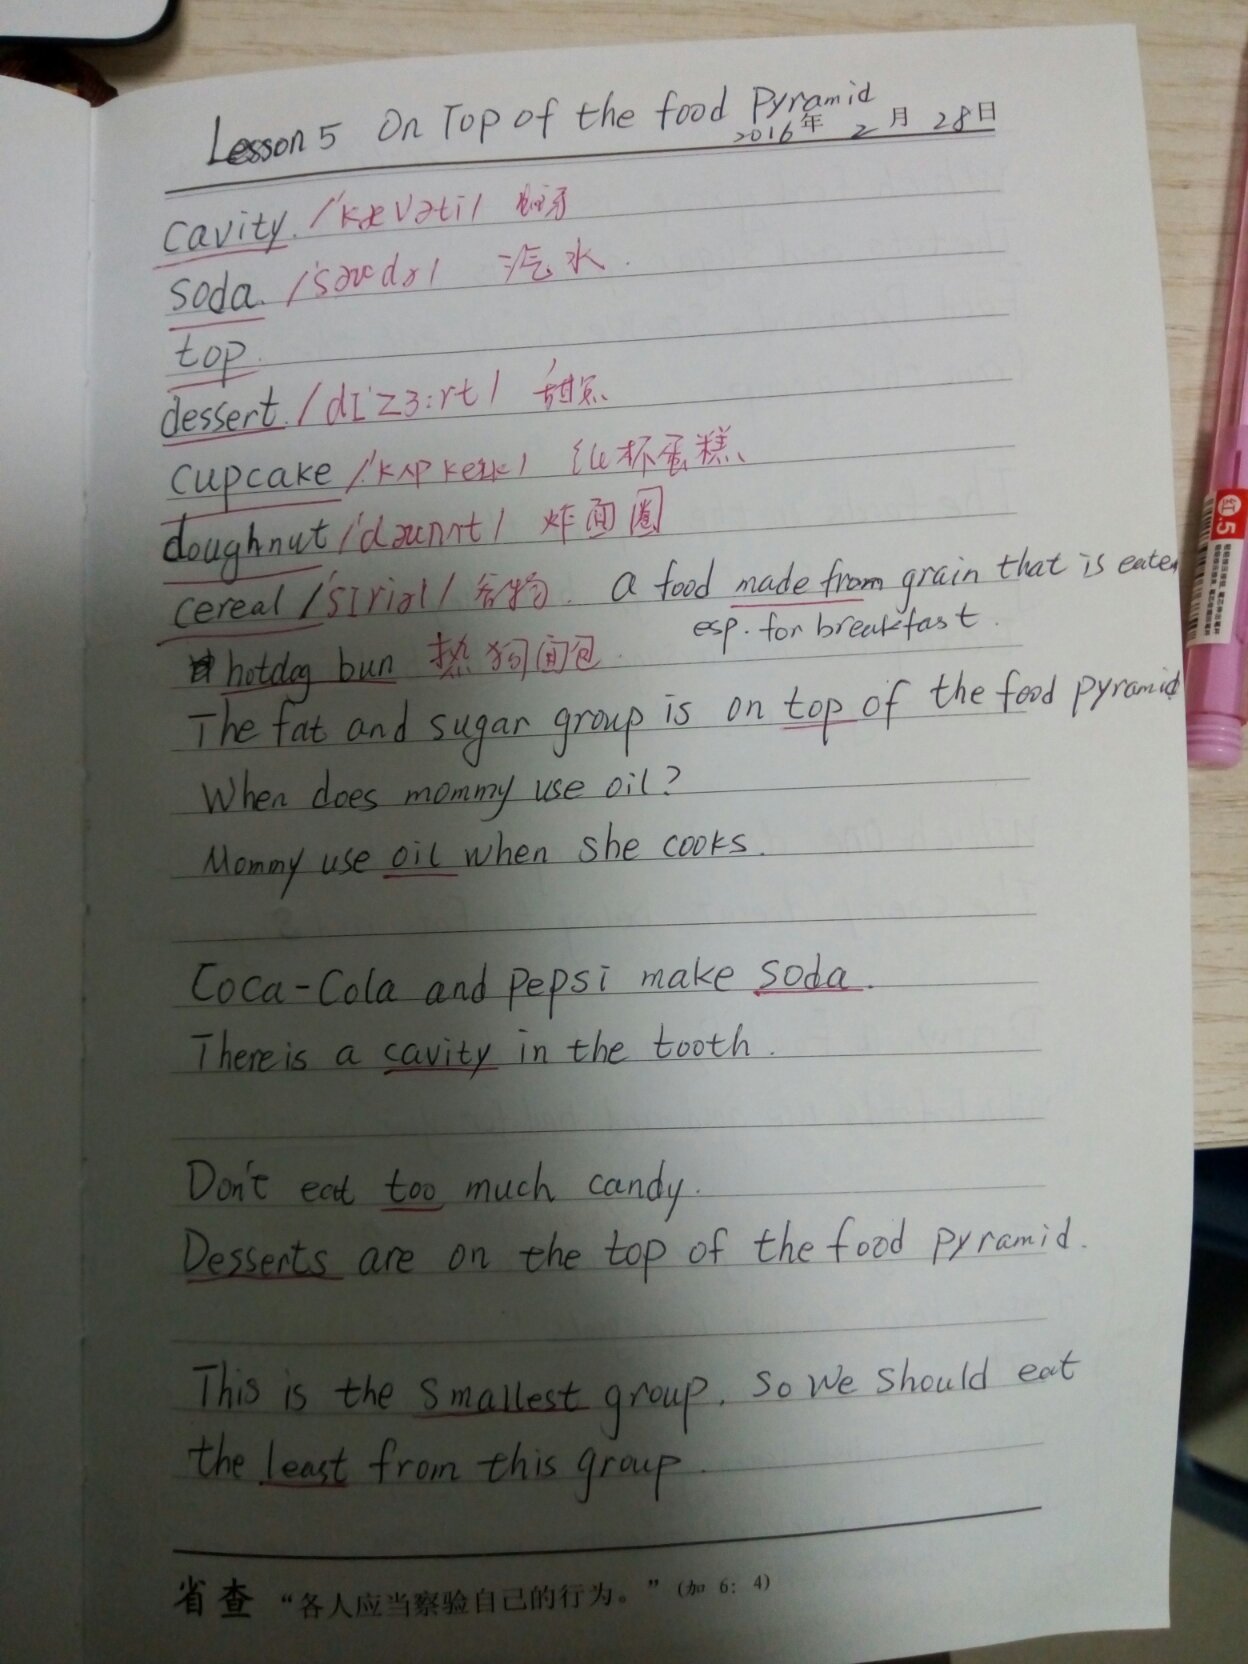 Lesson 5 On Top of the food Pyramid
2016年 2月 28日
cavity. /'kævəti/ 蛀牙
soda. /'səʊdə/ 汽水.
top.
dessert. /dɪ'zɜ:rt/ 甜点
cupcake /'kʌpkeɪk/ 纸杯蛋糕
doughnut /'dəʊnʌt/ 炸面圈
cereal /'sɪriəl/ 谷物. a food made from grain that is eaten
esp. for breakfast.
hotdog bun 热狗面包.
The fat and sugar group is on top of the food pyramid
When does mommy use oil?
Mommy use oil when she cooks.
Coca-Cola and Pepsi make soda.
There is a cavity in the tooth.
Don't eat too much candy.
Desserts are on the top of the food pyramid.
This is the smallest group. So We should eat
the least from this group.
省查 “各人应当察验自己的行为。”(加 6: 4)
红.5